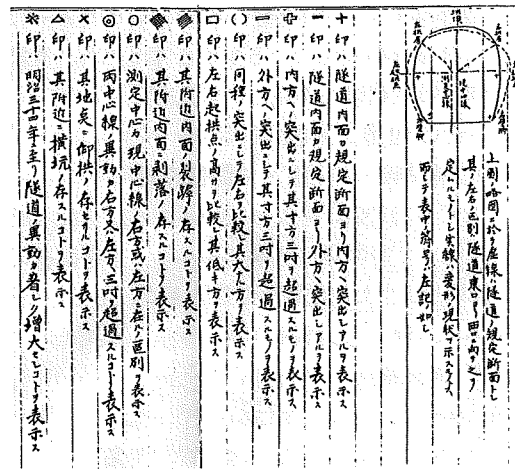 上圖略圖ニ於テ虛線ハ隧道ノ規定斷面トシ
其ノ左右ノ區別隧道東口ヨリ西口ニ向テ之ヲ
定ムルモノトシ實線ハ變形ノ現狀ヲ示スモノトス
而シテ表中ノ符号ハ左記ノ如シ
十印ハ隧道內面カ規定斷面ヨリ內方ヘ突出シアルヲ表示ス
一印ハ隧道內面カ規定斷面ヨリ外方ヘ突出シアルヲ表示ス
印ハ內方ヘノ突出ニシテ其寸方三吋ヲ超過スルモノヲ表示ス
印ハ外方ヘノ突出ニシテ其寸方三吋ヲ超過スルモノヲ表示ス
()印ハ同種ノ突出ニシテ左右ヲ比較シ其大ナル方ヲ表示ス
□印ハ左右起拱点ノ高サヲ比較シ其低キ方ヲ表示ス
印ハ其附近內面ニ裂罅ノ存スルコトヲ表示ス
印ハ其附近內面ニ剝落ノ存スルコトヲ表示ス
○印ハ測定中心カ現中心線ノ右方或ハ左方ニ在ルノ區別ヲ表示ス
◎印ハ両中心線ノ異動カ右方又ハ左方ニ三吋ヲ超過スルコトヲ表示ス
×印ハ其地点ニ仰拱ノ存セルコトヲ表示ス
△印ハ其附近ニ橫坑ノ存スルコトヲ表示ス
※印ハ明治三十四年ニ至リ隧道ノ異動カ著シク增大セシコトヲ表示ス